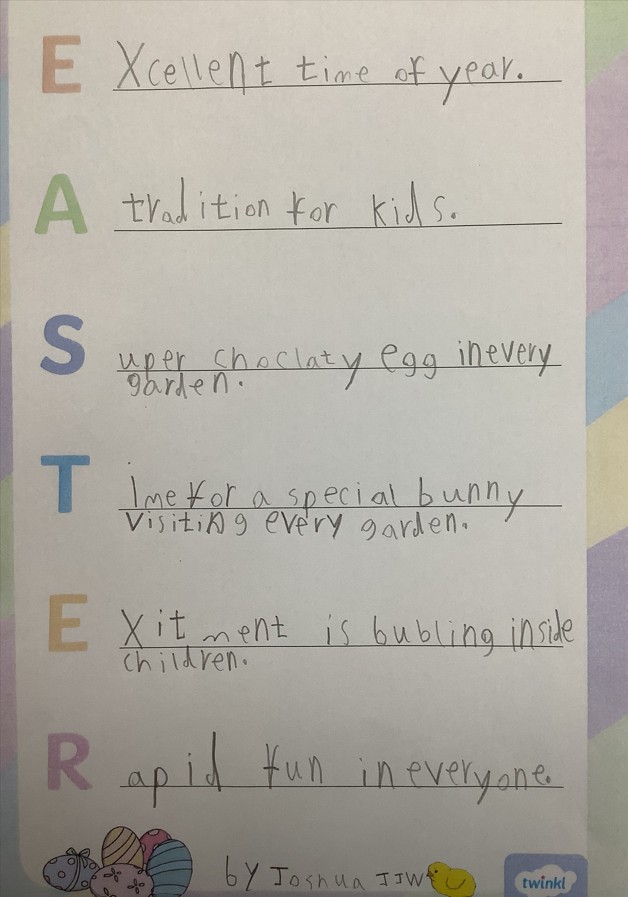 E Xcellent time of year.
A tradition for kids.
S uper choclaty egg in every
garden.
T ime for a special bunny
visiting every garden.
E Xitment is bubling inside
children.
R apid fun in everyone.
by Joshua JJW
twinkl